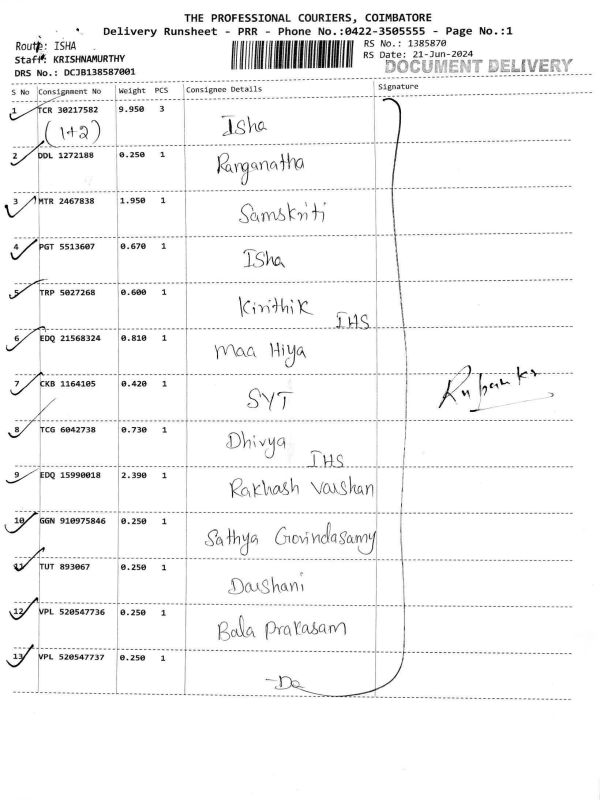 THE PROFESSIONAL COURIERS, COIMBATORE
Delivery Runsheet - PRR - Phone No.:0422-3505555 - Page No.:1
Route: ISHA
RS No.: 1385870
Staff: KRISHNAMURTHY
RS Date: 21-Jun-2024
DRS No.: DCJB138587001
DOCUMENT DELIVERY
S No Consignment No Weight PCS Consignee Details Signature
1 TCR 30217582 9.950 3 Isha
(1+2)
2 DDL 1272188 0.250 1 Ranganatha
3 MTR 2467838 1.950 1 Samskriti
4 PGT 5513607 0.670 1 Isha
5 TRP 5027268 0.600 1 Kirithik IHS
6 EDQ 21568324 0.810 1 Maa Hiya
7 CKB 1164105 0.420 1 SYT
8 TCG 6042738 0.730 1 Dhivya IHS
9 EDQ 15990018 2.390 1 Rakhash
10 GGN 910975846 0.250 1 Sathya Govindasamy
11 TUT 893067 0.250 1 Darshani
12 VPL 520547736 0.250 1 Bala Prakasam
13 VPL 520547737 0.250 1 -Do